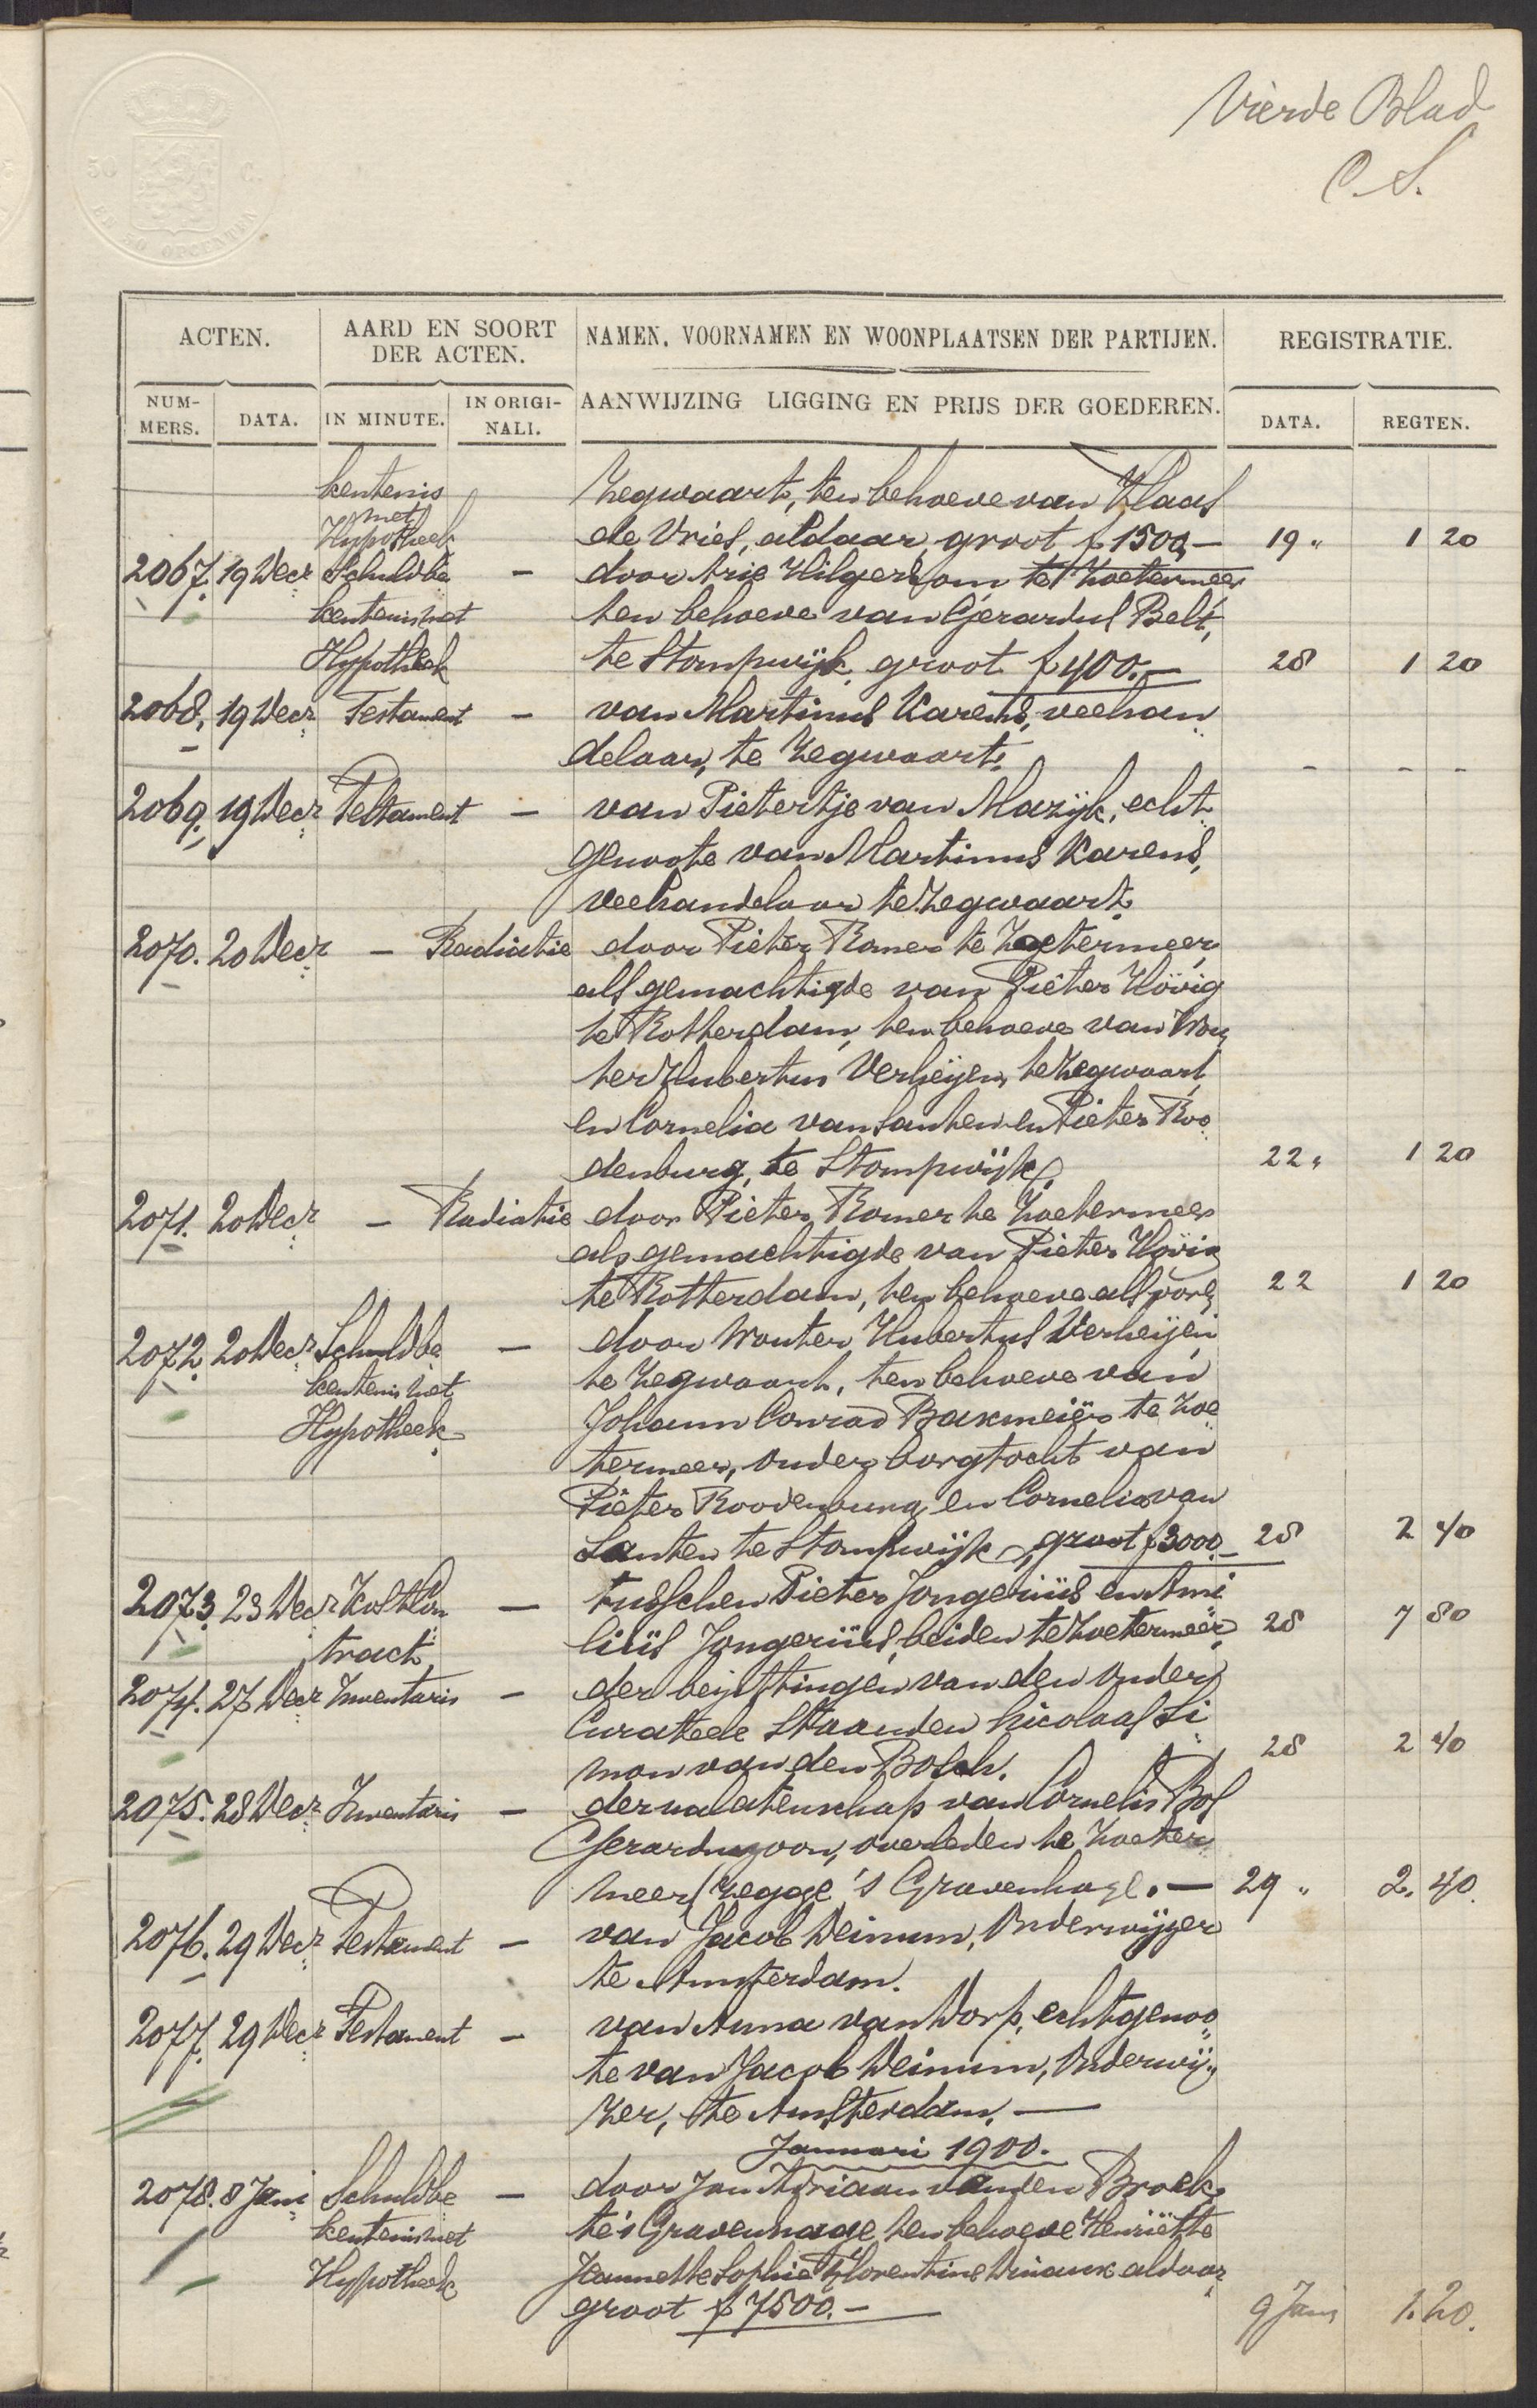 Vierde Blad
C. S.
50 C.
OPCENTEN
ACTEN.
AARD EN SOORT DER ACTEN.
NAMEN, VOORNAMEN EN WOONPLAATSEN DER PARTIJEN.
REGISTRATIE.
NUM-MERS.
DATA.
IN MINUTE.
IN ORIGI-NALI.
AANWIJZING LIGGING EN PRIJS DER GOEDEREN.
DATA.
REGTEN.
kentenis Zegwaart, ten behoeve van Klaas
met
Hypotheek de Vries, aldaar groot f 1500,- 19 " 1 20
2067. 19 Decr Schuldbe - door Arie Hilgersom te Zoetermeer
kentenis met ten behoeve van Gerardus Belt,
Hypotheek te Stompwijk, groot f 400.- 28 1 20
2068. 19 Decr Testament - van Martinus Karens, veehan
delaar, te Zegwaart. - - -
2069. 19 Decr Testament - van Pietertje van Mazijk, echt
genoote van Martinus Karens,
veehandelaar te Zegwaart.
2070. 20 Decr - Radiatie door Pieter Romer te Zoetermeer,
als gemachtigde van Pieter Hövig
te Rotterdam, ten behoeve van Wou
ter Hubertus Verheijen, te Zegwaart,
en Cornelia van Santen en Pieter Roo
denburg, te Stompwijk. 22 " 1 20
2071. 20 Decr - Radiatie door Pieter Romer te Zoetermeer
als gemachtigde van Pieter Hövig
te Rotterdam, ten behoeve als voren 22 1 20
2072. 20 Decr Schuldbe - door Wouter Hubertus Verheijen
kentenis met te Zegwaart, ten behoeve van
Hypotheek Johann Conrad Bakmeijer te Zoe
termeer, onder borgtocht van
Pieter Roodenburg en Cornelia van
Santen te Stompwijk, groot f 3000.- 28 2 40
2073. 23 Decr Kost Con - tusschen Pieter Jongeriüs en Ami
tract liüs Jongeriüs, beiden te Zoetermeer 28 7 80
2074. 27 Decr Inventaris - der bezittingen van den onder
Curatele Staanden Nicolaas Si
mon van den Bosch. 28 2 40
2075. 28 Decr Inventaris - der nalatenschap van Cornelis Bos
Gerarduszoon, overleden te Zoeter
meer, zegge 's Gravenhage. - 29 " 2. 40.
2076. 29 Decr Testament - van Jacob Deinum, Onderwijzer
te Amsterdam.
2077. 29 Decr Testament - van Anna van Dorp, echtgenoo
te van Jacob Deinum, Onderwij
zer, te Amsterdam. -
Januari 1900.
2078. 8 Jani Schuldbe - door Jan Adriaan van den Broek,
kentenis met te 's Gravenhage, ten behoeve Henriëtte
Hypotheek Jeannette Sophie Florentine aldaar,
groot f 7500.- 9 Jani 1. 20.